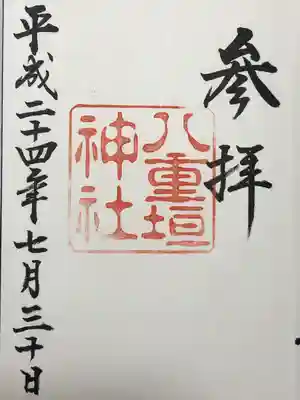 参拝
八重垣
神社
平成二十四年七月三十日